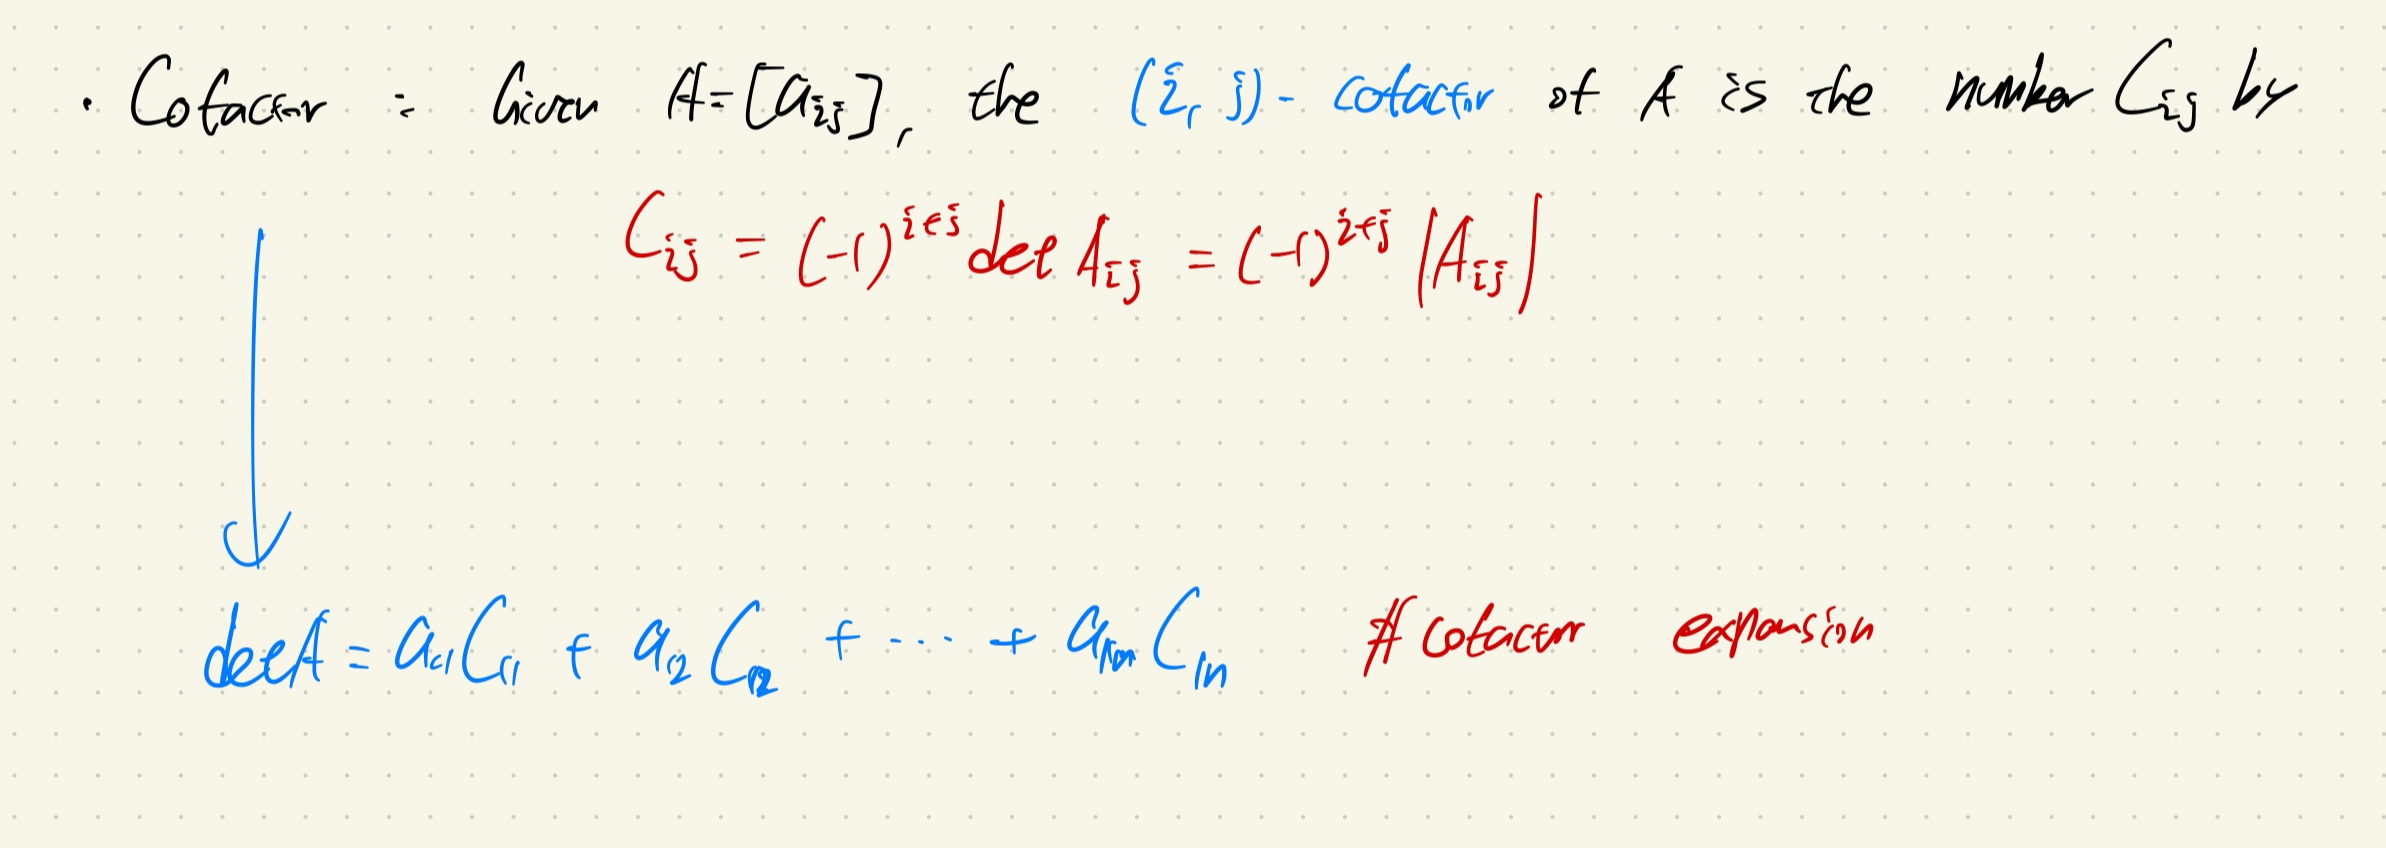 · Cofactor : Given A=[aij], the (i, j)- cofactor of A is the number Cij by
Cij = (-1)^i+j det Aij = (-1)^i+j |Aij|
detA = a11C11 + a12C12 + ··· + a1nC1n # cofactor expansion